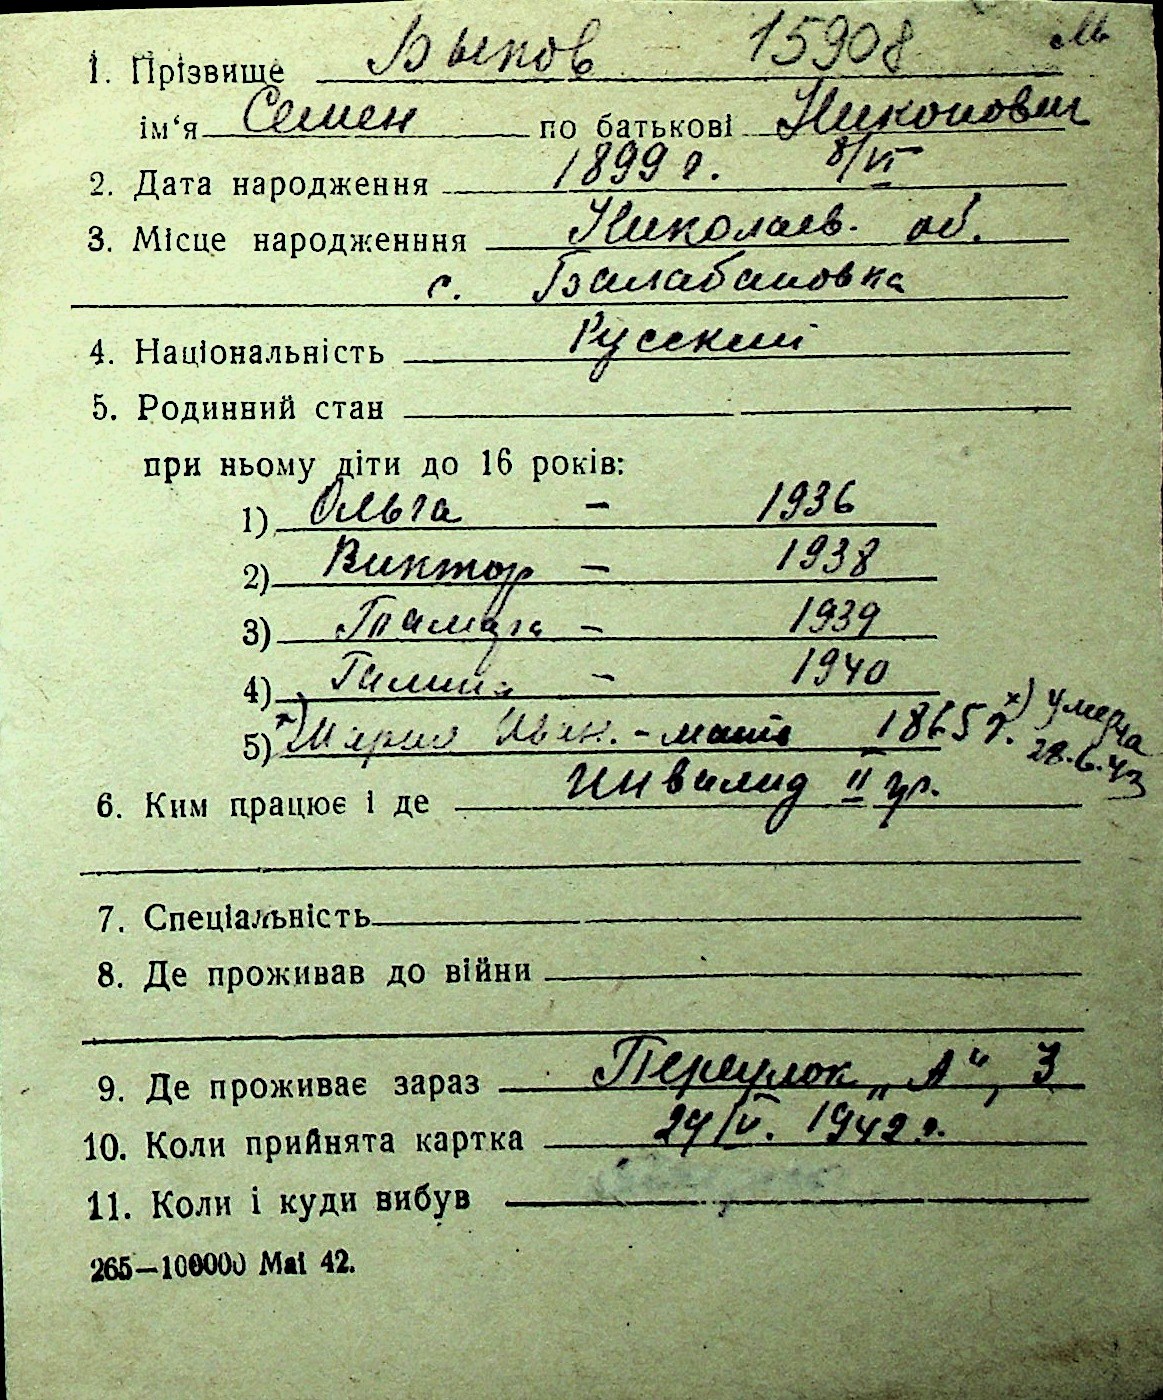 1. Прізвище Быков 15908 М
ім'я Семен по батькові Никонович
2. Дата народження 1899 г. 8/VI
3. Місце народженння Николаев. об.
с. Балабановка
4. Національність Русский
5. Родинний стан
при ньому діти до 16 років:
1) Ольга – 1936
2) Виктор – 1938
3) Тамара – 1939
4) Галина – 1940
х) умерла
5) х) Мария Иван. - мать 1865 г.
28.6.43
6. Ким працює і де Инвалид II гр.
7. Спеціальність
8. Де проживав до війни
9. Де проживає зараз Переулок „А", 3
10. Коли прийнята картка 1942 г.
11. Коли і куди вибув
265—100000 Mai 42.